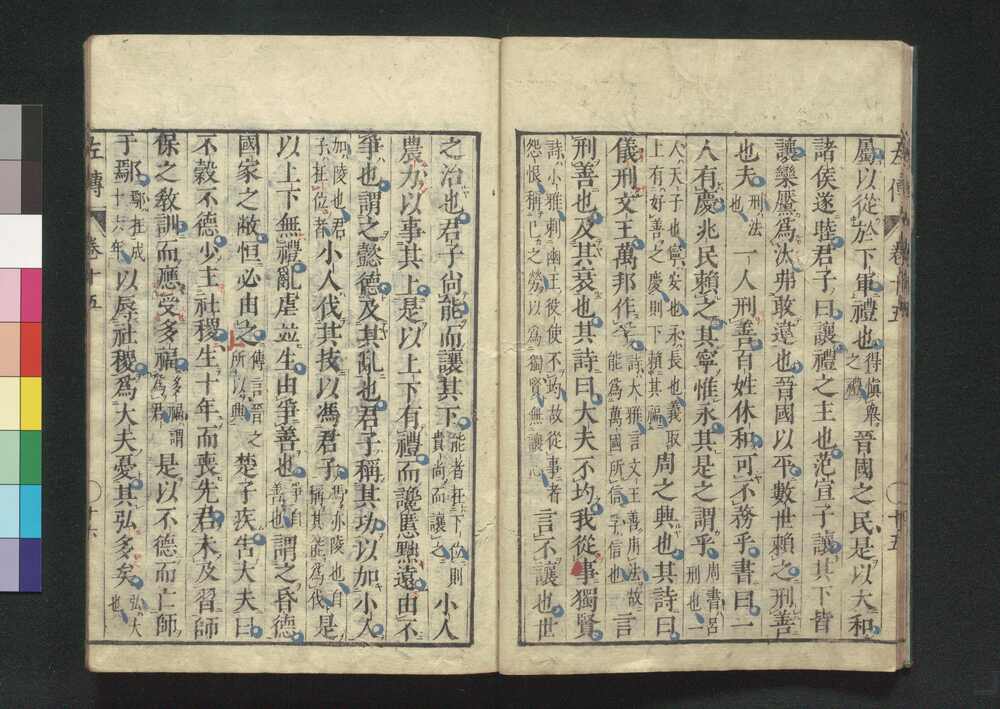 屬以從於下軍禮也得愼擧之禮晉國之民是以大和
諸侯遂睦君子曰讓禮之主也范宣子讓其下皆
讓欒黶爲汏弗敢違也晉國以平數世賴之刑善
也夫刑法也一人刑善百姓休和可不務乎書曰一
人有慶兆民賴之其寧惟永其是之謂乎周書呂刑也一
人天子也寧安也永長也義取上有好善之慶則下賴其福周之興也其詩曰
儀刑文王萬邦作孚詩大雅言文王善用法故能爲萬國所信孚信也言
刑善也及其衰也其詩曰大夫不均我從事獨賢
詩小雅刺幽王役使不均故從事者怨恨稱己之勞以爲獨賢無讓心言不讓也世
之治也君子尚能而讓其下能者在下位則貴尚而讓之小人
農力以事其上是以上下有禮而讒慝黜遠由不
爭也謂之懿德及其亂也君子稱其功以加小人
加陵也君子在位者小人伐其技以馮君子馮亦陵也自稱其能爲伐是
以上下無禮亂虐並生由爭善也爭自善也謂之昏德
國家之敝恒必由之傳言晉之所以興楚子疾告大夫曰
不穀不德少主社稷生十年而喪先君未及習師
保之敎訓而應受多福多福謂爲君是以不德而亡師
于鄢鄢在成十六年以辱社稷爲大夫憂其弘多矣弘大也
左傳 卷十五 十六